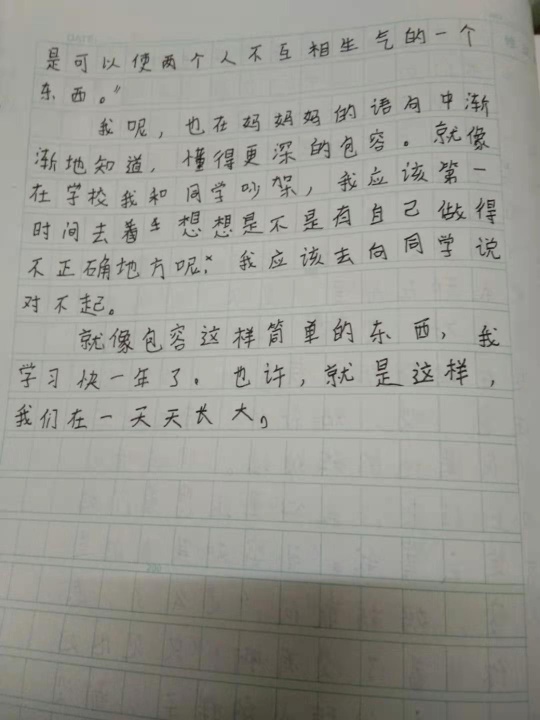 是可以使两个人不互相生气的一个
东西。”
我呢，也在妈妈妈的语句中渐
渐地知道，懂得更深的包容。就像
在学校我和同学吵架，我应该第一
时间去着手想想是不是有自己做得
不正确地方呢？我应该去向同学说
对不起。
就像包容这样简单的东西，我
学习快一年了。也许，就是这样，
我们在一天天长大。